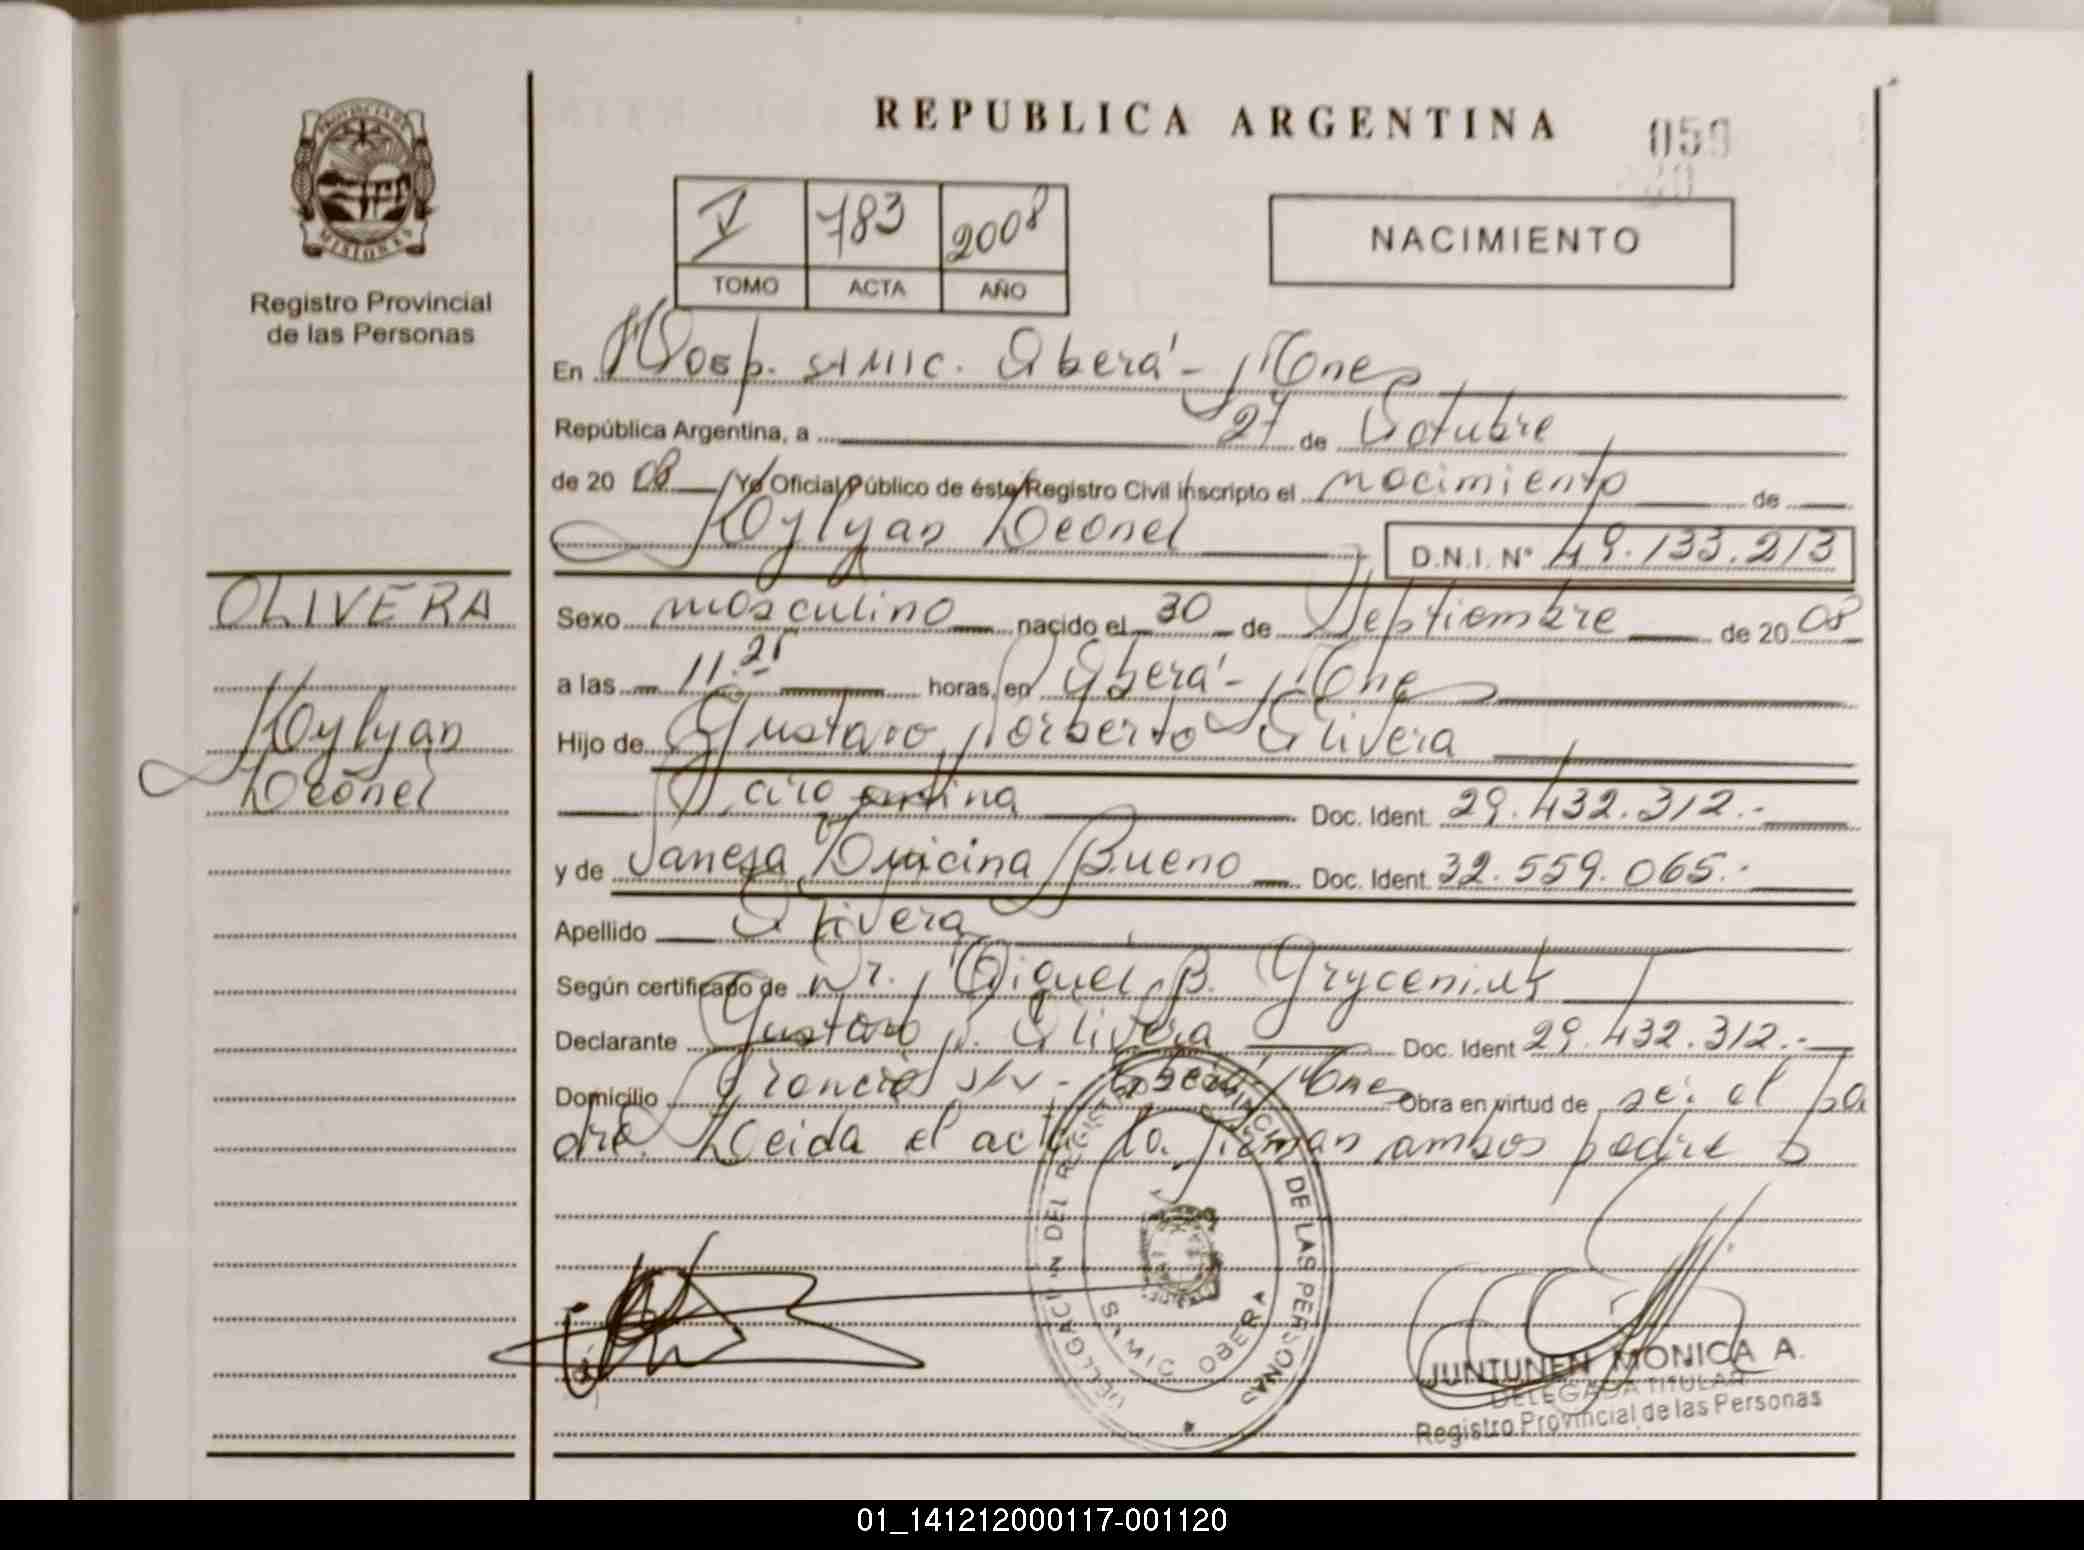 REPUBLICA ARGENTINA
059
PROVINCIA DE
MISIONES
Registro Provincial
de las Personas
V 783 2008
TOMO ACTA AÑO
NACIMIENTO
En Hosp. SAMIC. Oberá - Mnes
República Argentina, a 27 de Octubre
de 20 08 Yo Oficial Público de éste Registro Civil inscripto el nacimiento de
Kylyan Leonel D.N.I. N° 49.133.213
OLIVERA
Kylyan
Leonel
Sexo masculino nacido el 30 de Septiembre de 20 08
a las 11.25 horas, en Oberá - Mnes
Hijo de Gustavo Norberto Olivera
Doc. Ident. 29.432.312.-
y de Vanesa Bueno Doc. Ident. 32.559.065.-
Apellido Olivera
Según certificado de Dr. Miguel B.
Declarante Gustavo N. Olivera Doc. Ident 29.432.312.-
Domicilio s/n - Oberá Mnes Obra en virtud de ser el pa
dre. Leida el acta la firman ambos padre s
DELEGACION DEL REGISTRO PROVINCIAL DE LAS PERSONAS
SAMIC OBERA
JUNTUNEN MONICA A.
DELEGADA TITULAR
Registro Provincial de las Personas
01_141212000117-001120